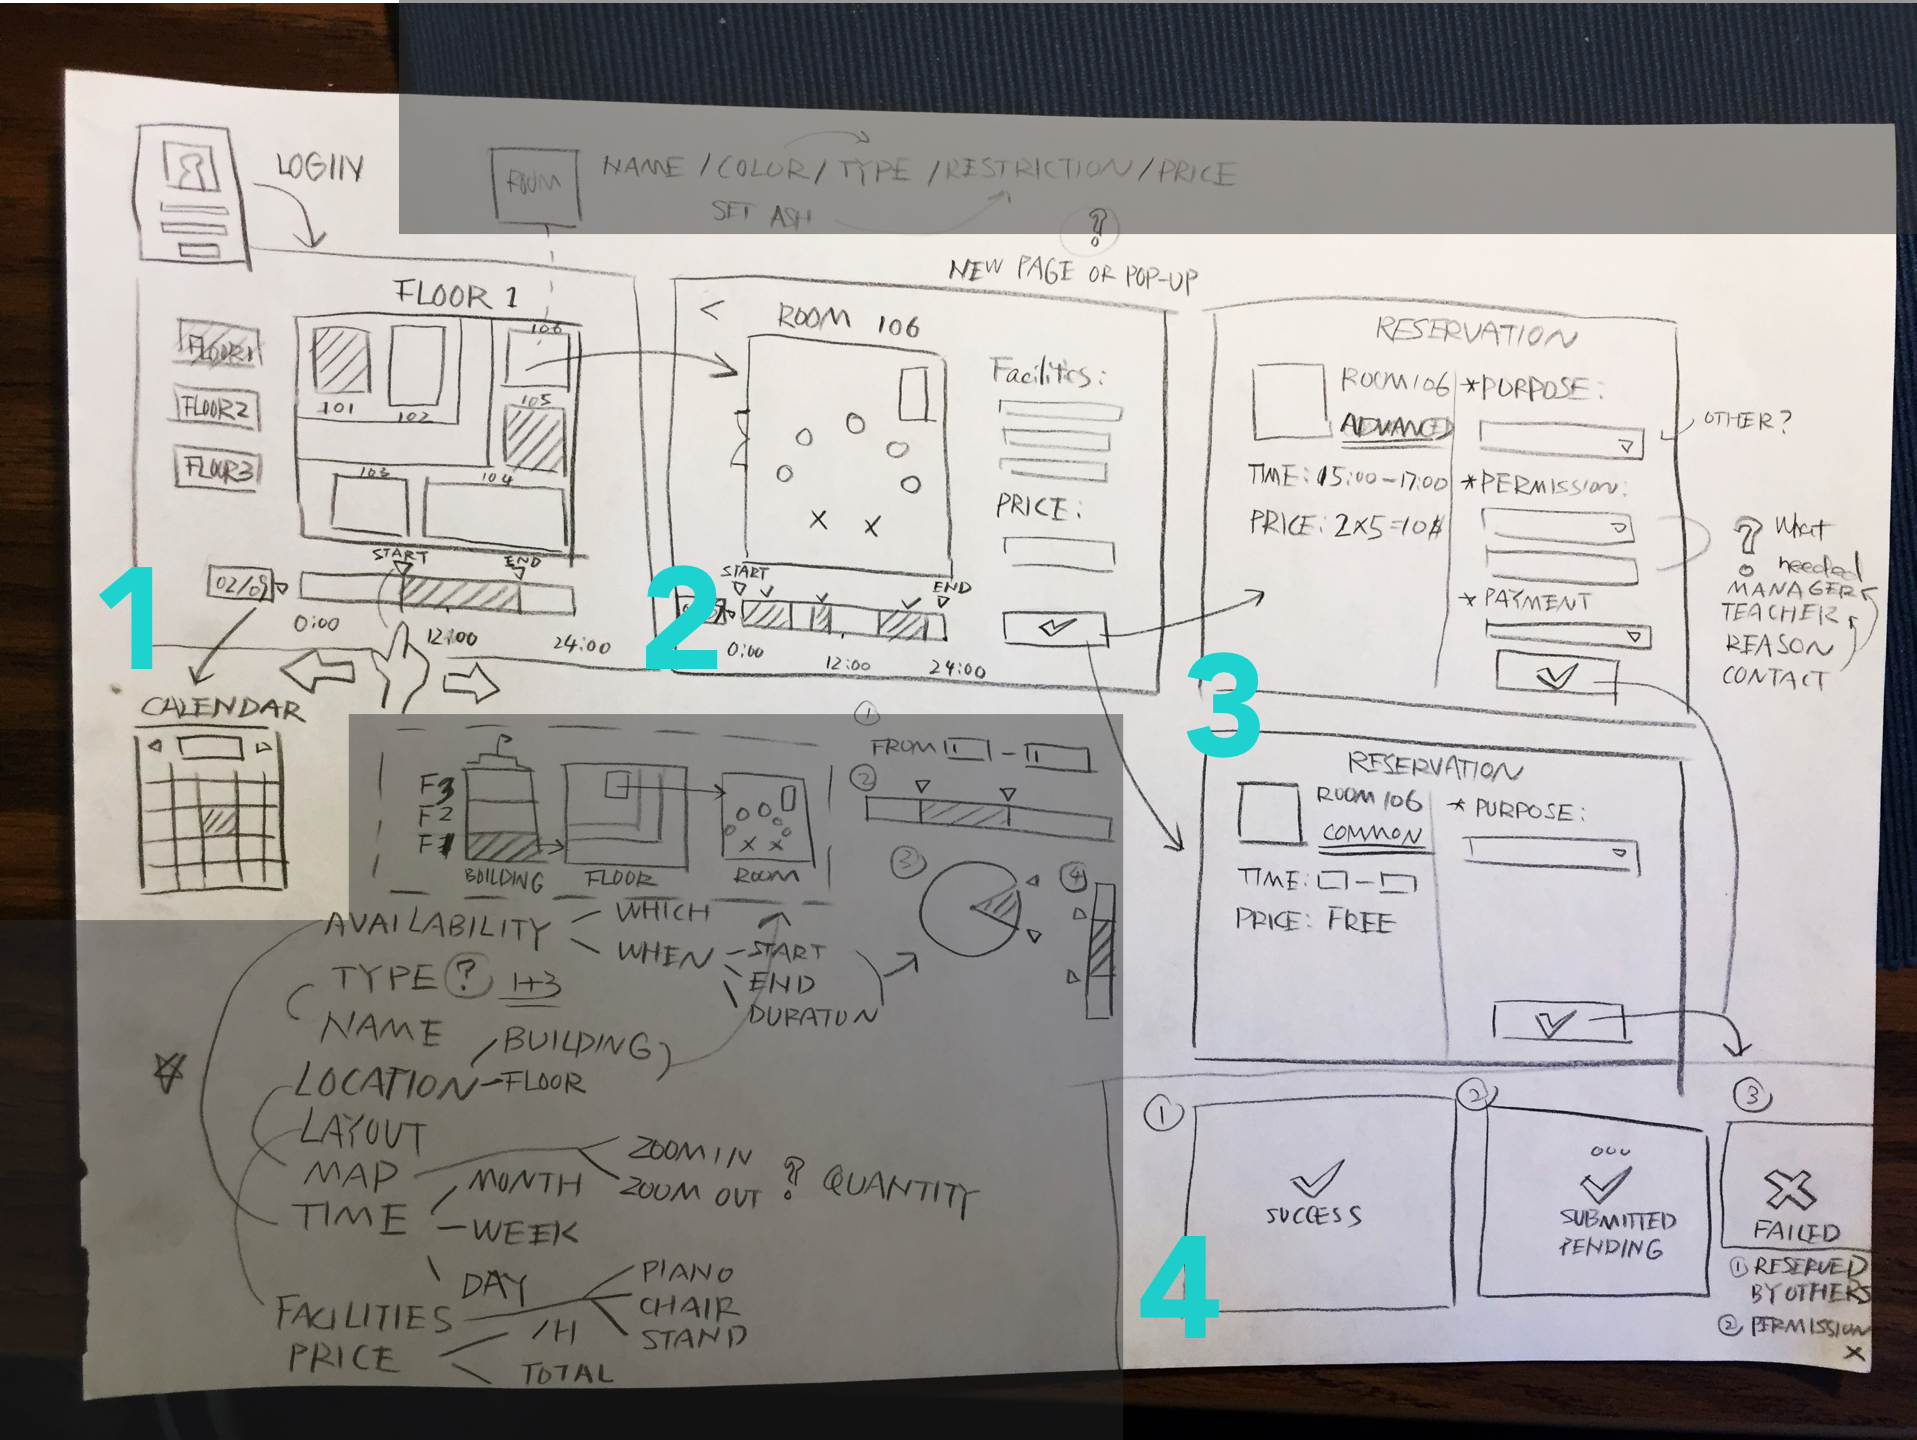 LOGIIN
ROOM
NAME / COLOR / TYPE / RESTRICTION / PRICE
SET ASH
?
NEW PAGE OR POP-UP
FLOOR 1
FLOOR1
FLOOR2
FLOOR3
101
102
106
105
103
104
START
END
02/09
0:00
12:00
24:00
1
CALENDAR
<
ROOM 106
Facilities:
PRICE:
START
END
0:00
12:00
24:00
2
RESERVATION
ROOM 106
ADVANCED
TIME: 15:00-17:00
PRICE: 2x5=10$
*PURPOSE:
OTHER?
*PERMISSION:
* PAYMENT
? What
needed
MANAGER
TEACHER
REASON
CONTACT
3
RESERVATION
ROOM 106
COMMON
TIME: -
PRICE: FREE
* PURPOSE:
F3
F2
F1
BUILDING
FLOOR
ROOM
①
FROM -
②
③
④
AVAILABILITY
WHICH
WHEN
START
END
DURATON
TYPE ? 1+3
NAME
LOCATION
BUILDING
FLOOR
LAYOUT
MAP
ZOOM IN
ZOOM OUT
? QUANTITY
TIME
MONTH
WEEK
DAY
FACILITIES
PIANO
CHAIR
STAND
PRICE
/H
TOTAL
4
①
SUCCESS
②
SUBMITTED
PENDING
③
FAILED
① RESERVED
BY OTHERS
② PERMISSION
X